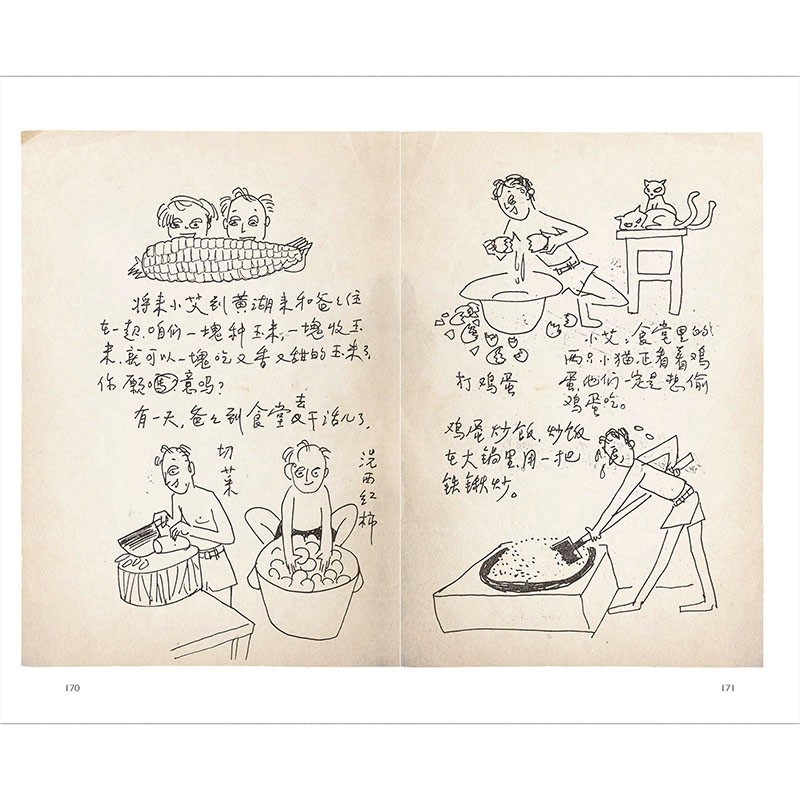 将来小艾到黄湖来和爸々住
在一起,咱们一块种玉米,一块收玉
米,就可以一块吃又香又甜的玉米了,
你愿意吗?
有一天,爸々到食堂去干活儿了,
切菜
洗西红柿
170
打鸡蛋
小艾:食堂里的
两只小猫正看着鸡
蛋,他们一定是想偷
鸡蛋吃。
鸡蛋炒饭,炒饭
在大锅里用一把
铁锹炒。
171